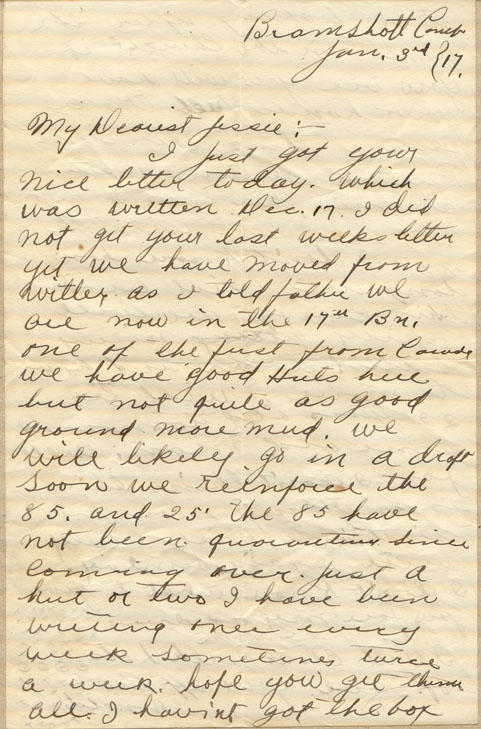 Bramshott Camp
Jan. 3rd /17.
My Dearest Jessie:-
I just got your
nice letter today. which
was written Dec. 17. I did
not get your last weeks letter
yet we have moved from
Witley as I told father we
are now in the 17th Bn.
one of the first from Canada
we have good Huts here
but not quite as good
ground more mud. we
will likely go in a draft
soon we reinforce the
85. and 25. the 85 have
not been quarantine since
coming over. just a
hut or two I have been
writing once every
week sometimes twice
a week. hope you get them
all. I havint got the box